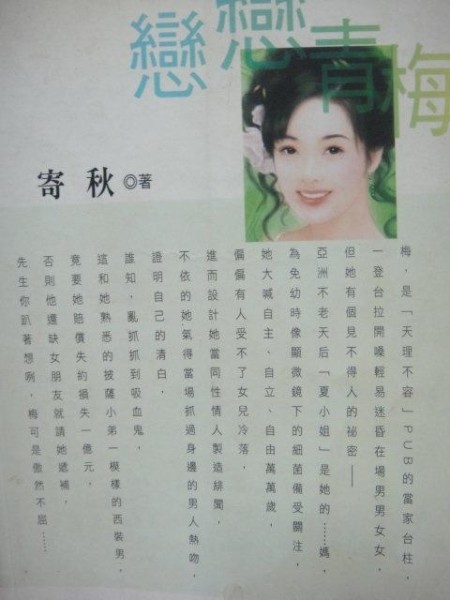 戀戀青梅
寄秋◎著
梅，是「天理不容」PUB的當家台柱，
一登台拉開嗓輕易迷昏在場男男女女，
但她有個見不得人的祕密——
亞洲不老天后「夏小姐」是她的……媽，
為免幼時像顯微鏡下的細菌備受關注，
她大喊自主、自立、自由萬萬歲，
偏偏有人受不了女兒冷落，
進而設計她當同性情人製造緋聞，
不依的她氣得當場抓過身邊的男人熱吻，
證明自己的清白，
誰知，亂抓抓到吸血鬼，
這和她熟悉的披薩小弟一模樣的西裝男，
竟要她賠償失約損失一億元，
否則他還缺女朋友就請她遞補，
先生你趴著想咧，梅可是傲然不屈……